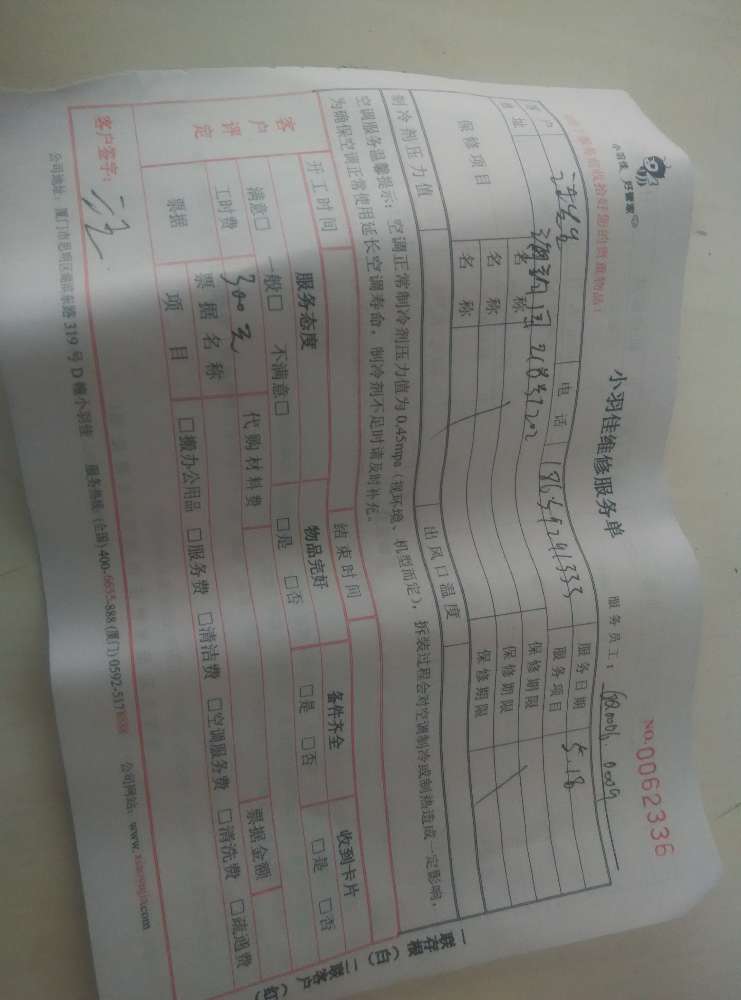 小羽佳 好管家
小羽佳维修服务单
NO.0062336
服务员工：
贵重物品：
客户
电话
服务日期 5.18
地址
服务项目
保修项目
名称
保修期限
名称
保修期限
名称
保修期限
制冷剂压力值
出风口温度
空调服务温馨提示：空调正常制冷剂压力值为0.45mpa（视环境、机型而定），拆装过程会对空调制冷或制热造成一定影响，
为确保空调正常使用延长空调寿命，制冷剂不足时请及时补充。
开工时间
结束时间
客户评定
服务态度
物品完好
备件齐全
收到卡片
满意□ 一般□ 不满意□
□是 □否
□是 □否
□是 □否
工时费
300元
代购材料费
票据金额
票据
票据名称
项目
□搬办公用品 □服务费 □清洁费 □空调服务费 □清洗费 □疏通费
客户签字：
公司地址：厦门市思明区 319号D幢小羽佳
服务热线：(全国)400- -888 (厦门)0592-517
公司网站：www. .com
一联存根（白） 二联客户（红）